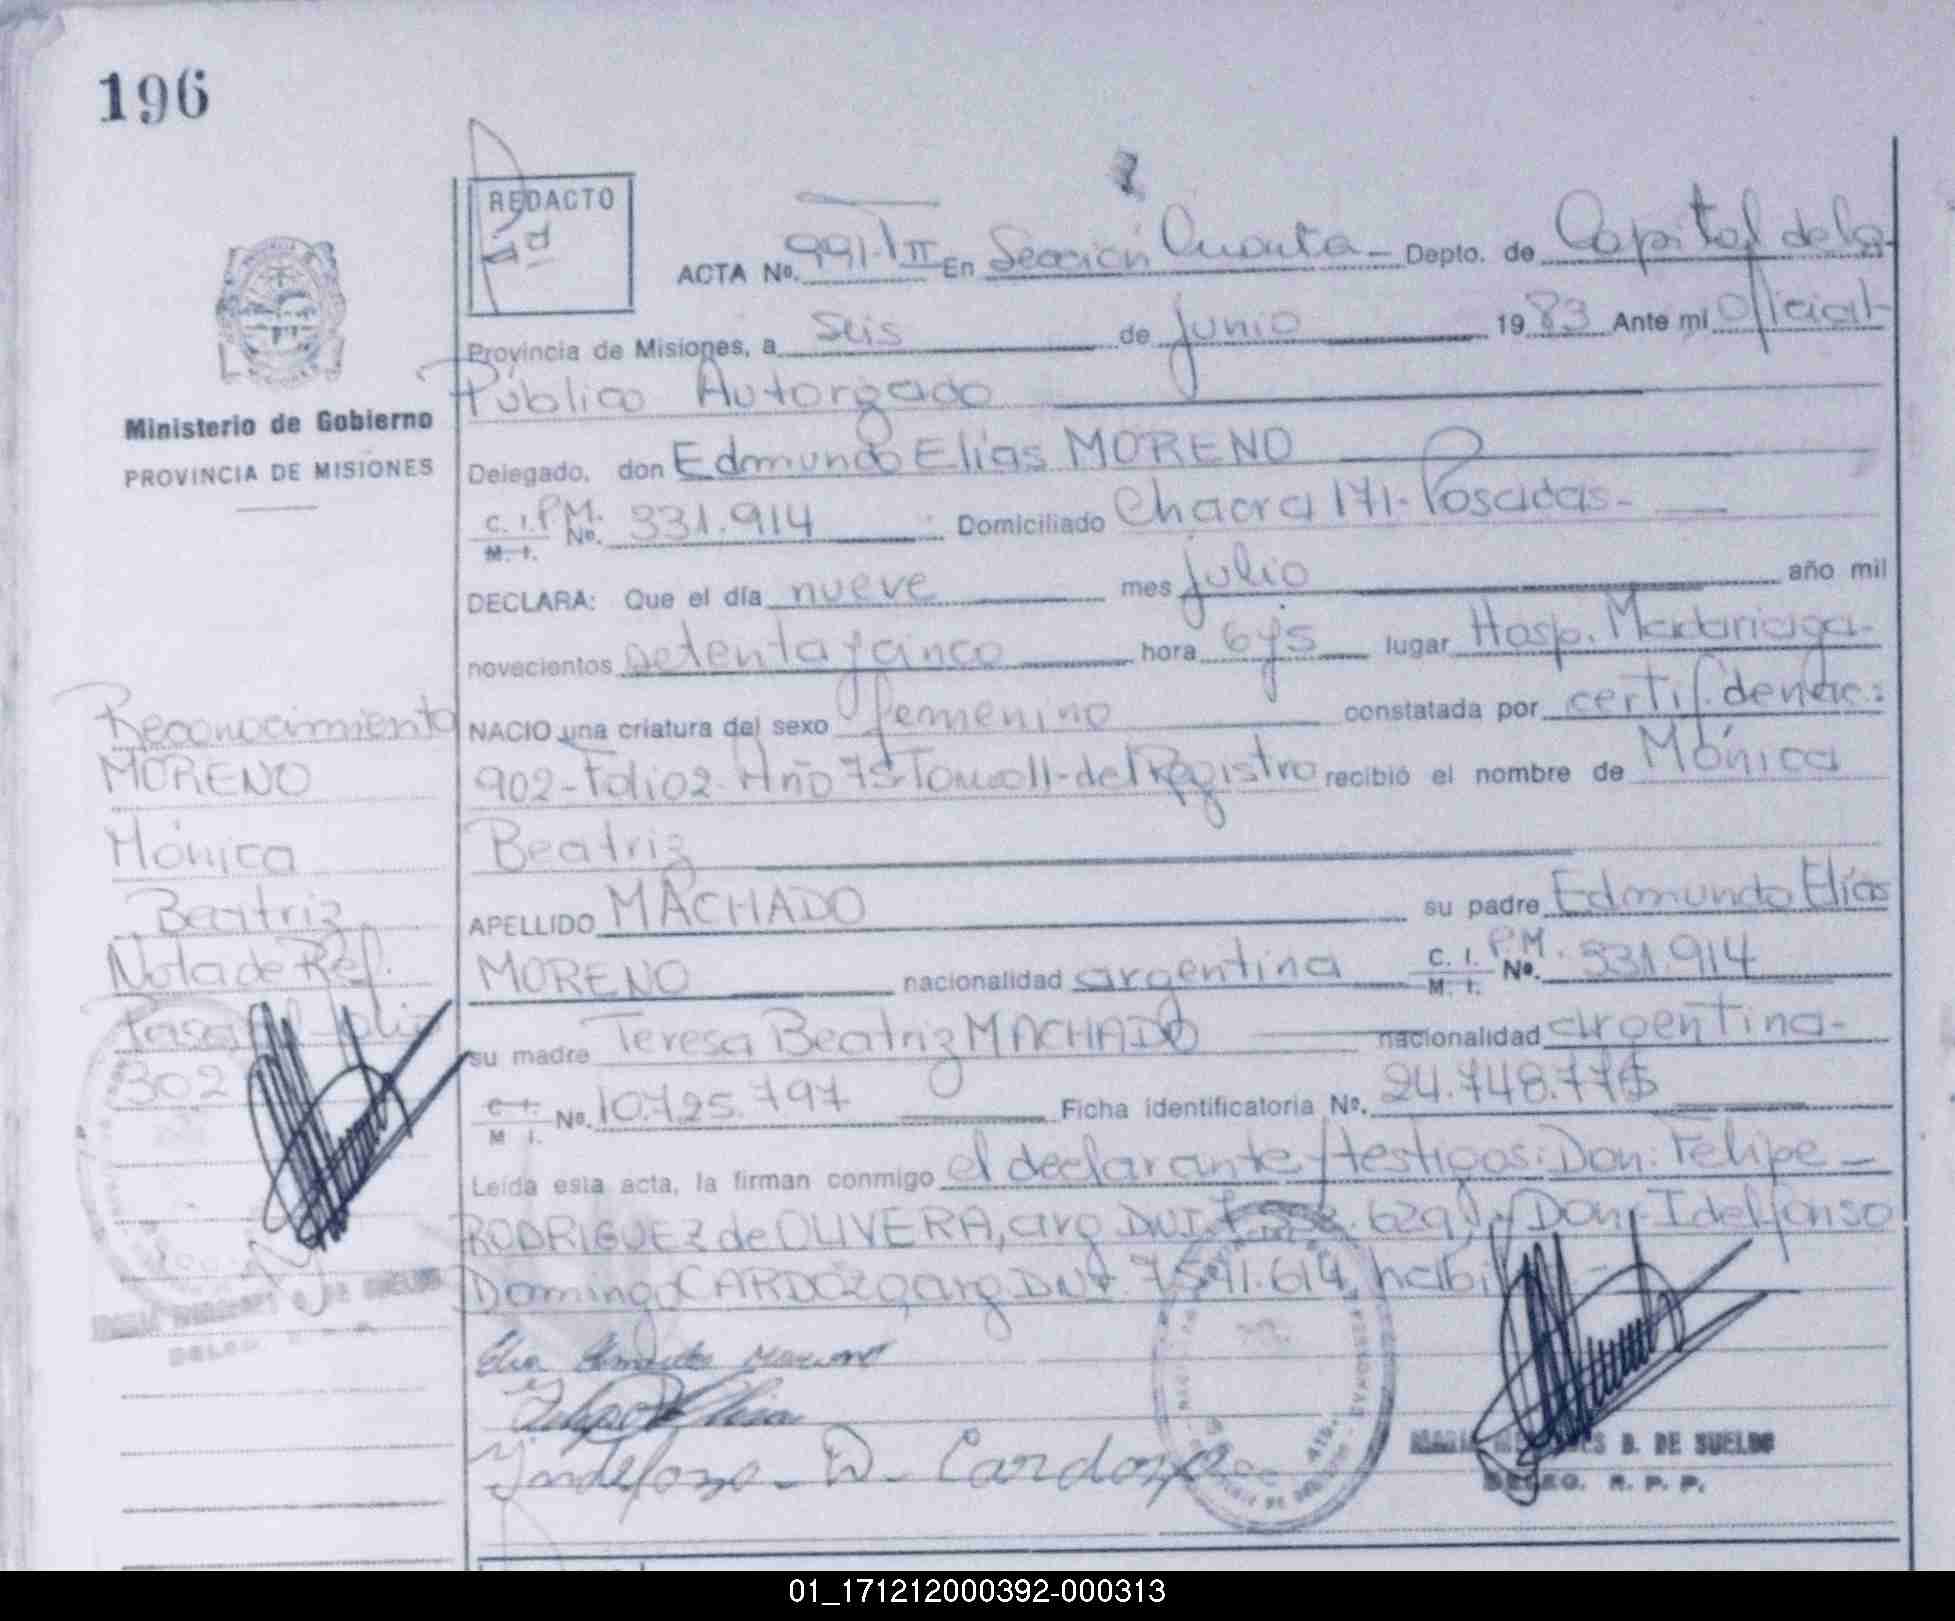 196
REDACTO
ACTA No. 991-III En Sección Cuarta - Depto. de Capital de la
Provincia de Misiones, a seis de junio 1983 Ante mi Oficial
Público Autorgado
Ministerio de Gobierno
PROVINCIA DE MISIONES
Delegado, don Edmundo Elías MORENO
C. I. P.M. No. 331.914 Domiciliado Chacra 171 - Posadas -
M. I.
DECLARA: Que el día nueve mes julio año mil
novecientos setenta y cinco hora 6 y 5 lugar Hosp. Madariaga -
NACIO una criatura del sexo femenino constatada por certif. de nac.:
902 - Folio 2 - Año 75 - Tomo II - del Registro recibió el nombre de Mónica
Beatriz
APELLIDO MACHADO su padre Edmundo Elías
MORENO nacionalidad argentina C. I. P.M. No. 331.914
M. I.
su madre Teresa Beatriz MACHADO nacionalidad argentina -
C. I. No. 10.725.797 Ficha identificatoria No. 24.748.775
M I.
Leída esta acta, la firman conmigo el declarante y testigos: Don: Felipe -
RODRIGUEZ de OLIVERA, arg. DNI 629 y Don Idelfonso
Domingo CARDOZO, arg. DNI. 7.541.614
Reconocimiento
MORENO
Mónica
Beatriz
Nota de Ref.
Pasa al folio
302
Felipe
Yndelfonzo - D - Cardozo
B. DE SUELDO
DELEG. R. P. P.
01_171212000392-000313